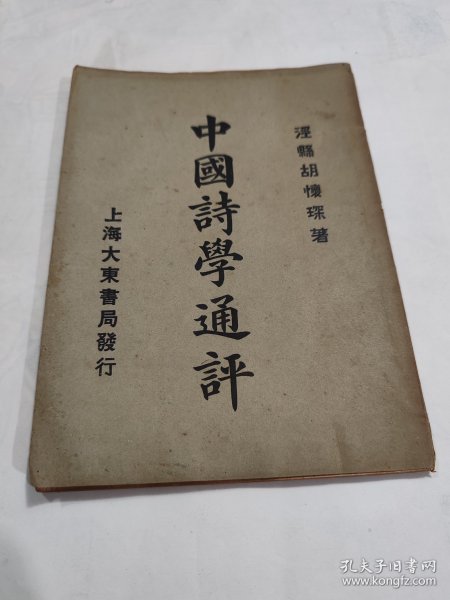 涇縣胡懷琛著
中國詩學通評
上海大東書局發行
孔夫子旧书网
www.kongfz.com